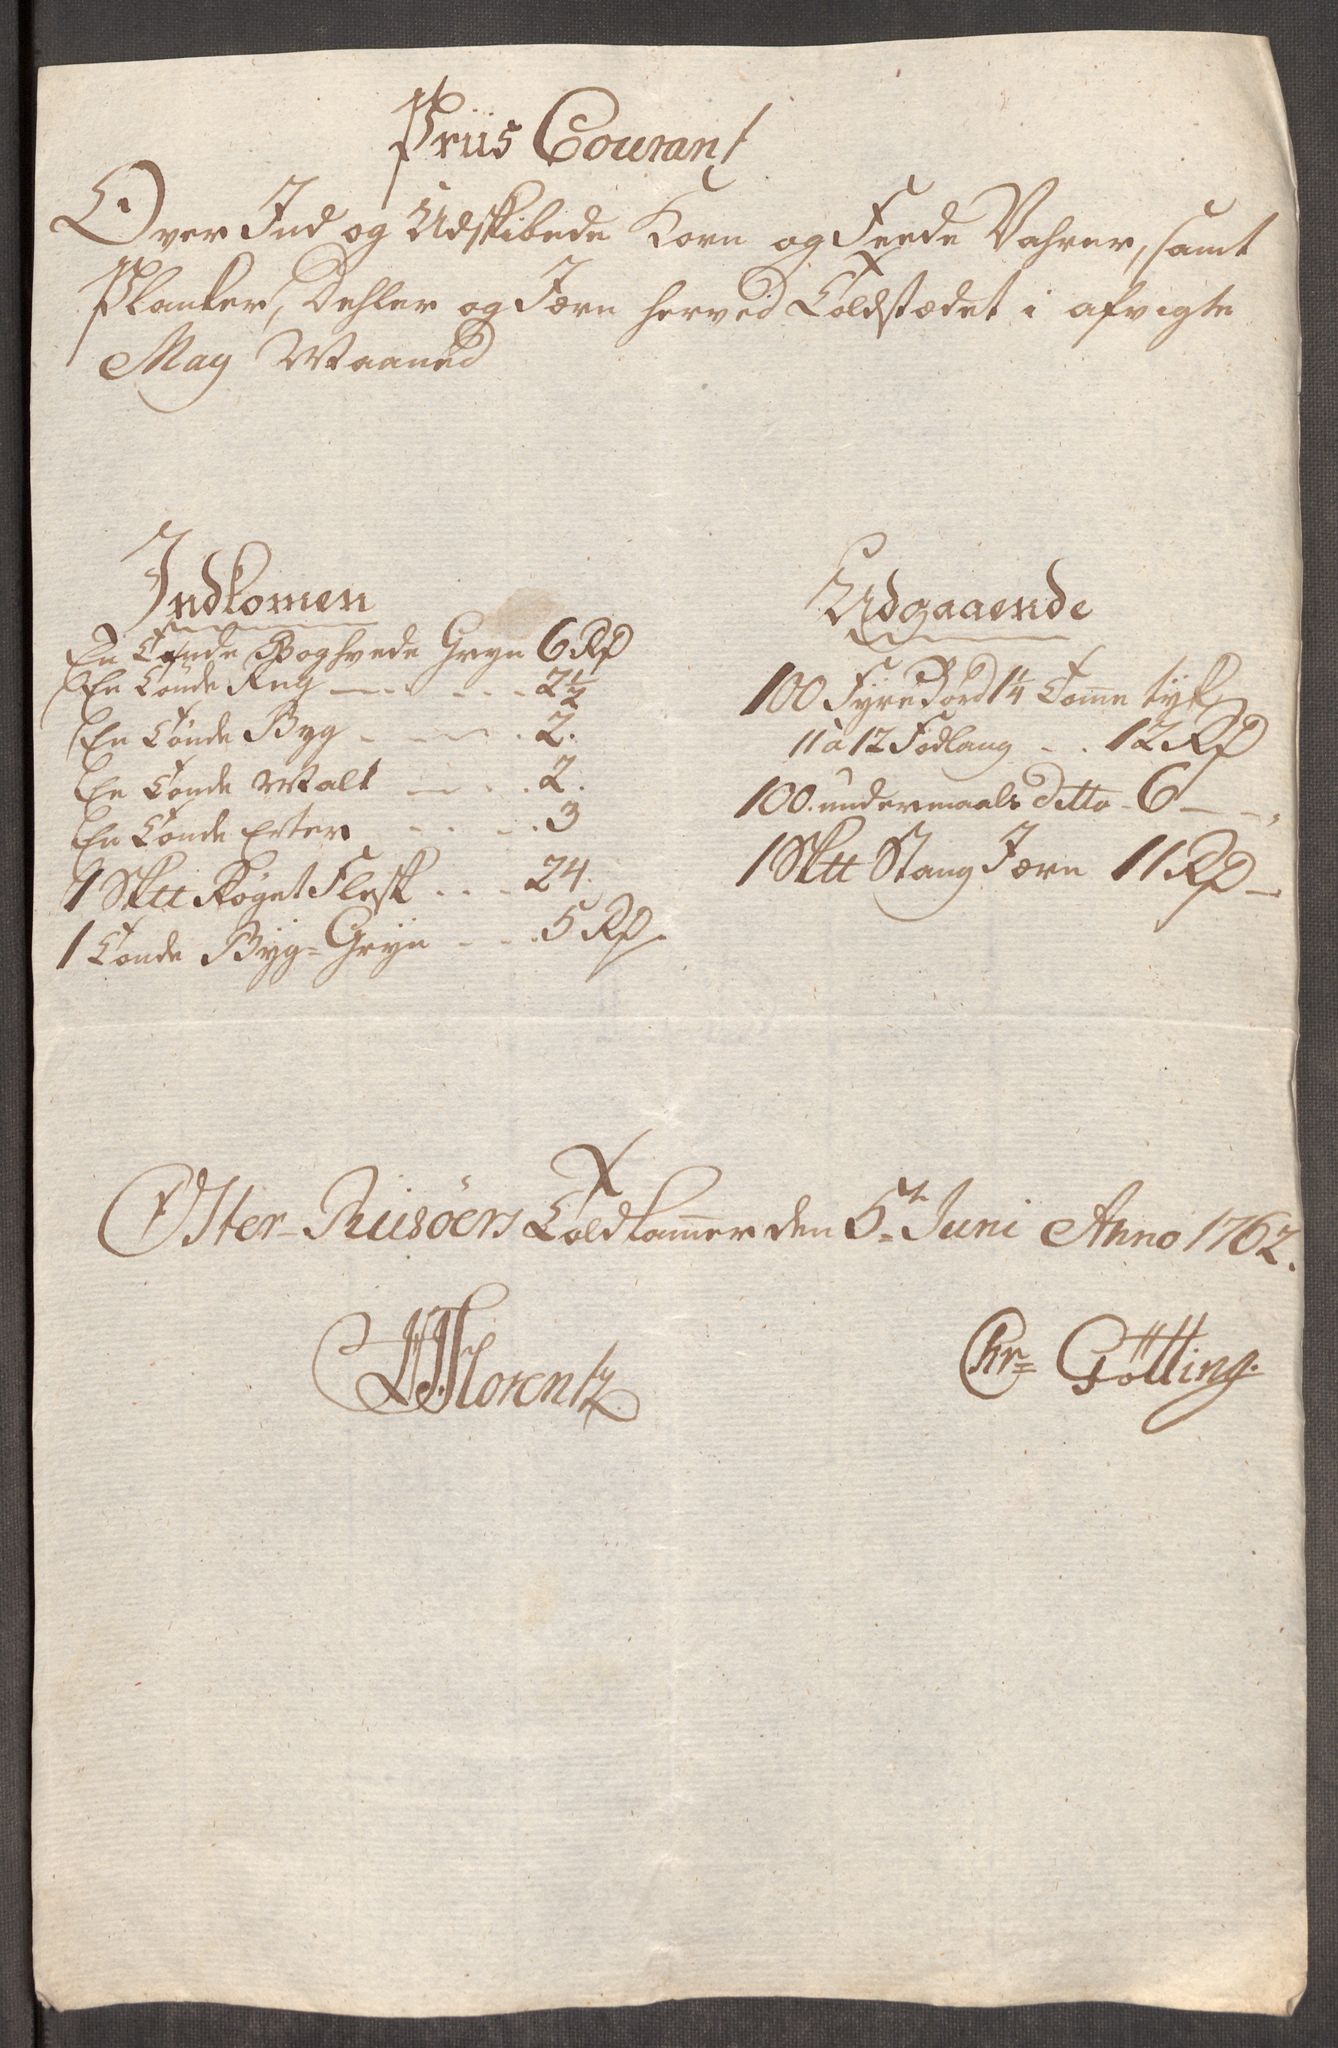 Priis Courant
Over Ind og Udskibede Korn og Feede Vahrer, samt
Planker, Dehler og Jærn herved Toldstædet i afvigte
May Maaned
Indkomen
En Tønde Boghvede Gryn 6 Rd
En Tønde Rug - - - - 2½
En Tønde Byg - - - - 2.
En Tønde Malt - - - - 2.
En Tønde Erter - - - - 3
1 Sktt Røget Flesk - - - 24.
1 Tønde Byg=Gryn - - - 5 Rd.
Udgaaende
100 Fyre Bord 1¼ Tomme tyk
11 à 12 Fod lang - - 12 Rd
100. undermaals ditto - 6 - -
1 Sktt Stang Jærn 11 Rd -
Øster-Riisøers Toldkammer den 5te Juni Anno 1762.
Florentz
Chr= Götting.